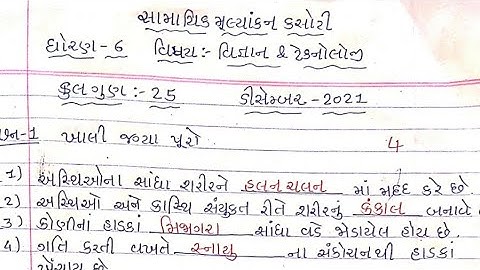 સામાયિક મૂલ્યાંકન કસોટી
ધોરણ - 6 વિષય :- વિજ્ઞાન & ટેકનોલોજી
કુલ ગુણ :- 25 ડીસેમ્બર - 2021
પ્રશ્ન-1 ખાલી જગ્યા પૂરો 4
1) અસ્થિઓના સાંધા શરીરને હલનચલન માં મદદ કરે છે.
2) અસ્થિઓ અને કાસ્થિ સંયુકત રીતે શરીરનું કંકાલ બનાવે
3) કોણીનાં હાડકાં મિજાગરા સાંધા વડે જોડાયેલ હોય છે.
4) ગતિ કરતી વખતે સ્નાયુ ના સંકોચનથી હાડકાં
ખેંચાય છે.